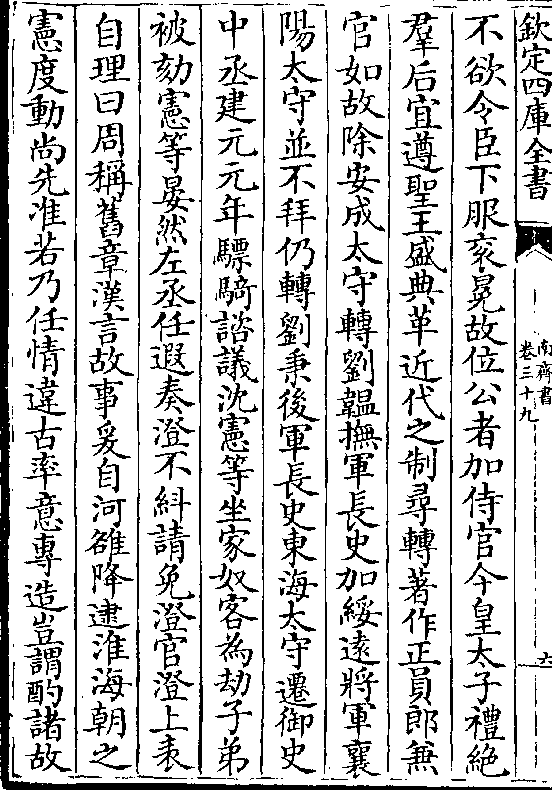 欽定四庫全書
南齊書
卷三十九
六
不欲令臣下服衮冕故位公者加侍官今皇太子禮絶
羣后宜遵聖王盛典革近代之制尋轉著作正員郎兼
官如故除安成太守轉劉韞撫軍長史加綏遠將軍襄
陽太守並不拜仍轉劉秉後軍長史東海太守遷御史
中丞建元元年驃騎諮議沈憲等坐家奴客為劫子弟
被劾憲等晏然左丞任遐奏澄不糾請免澄官澄上表
自理曰周稱舊章漢言故事爰自河雒降逮淮海朝之
憲度動尚先准若乃任情違古率意專造豈謂酌諸故